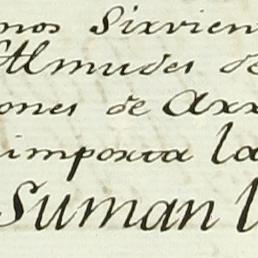 mos Sixvien
Almudes de
ones de Axx
importa la
Suman l